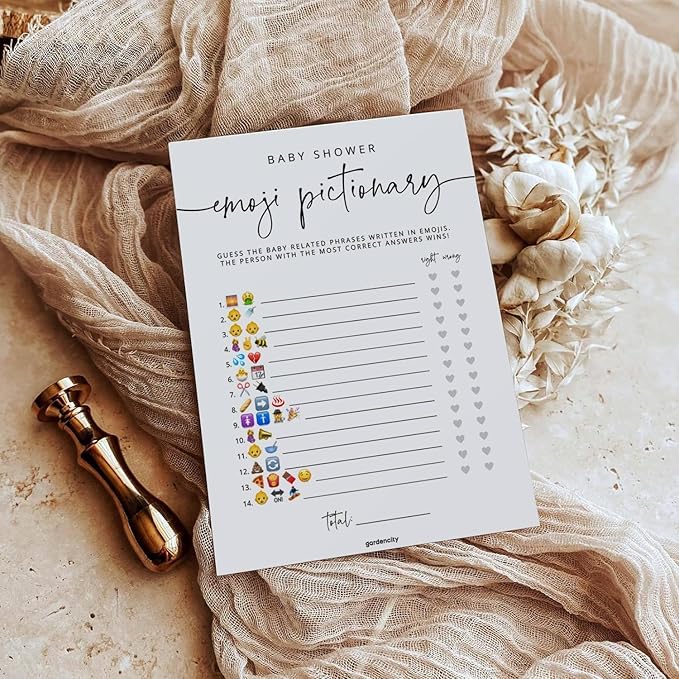 BABY SHOWER
emoji pictionary
GUESS THE BABY RELATED PHRASES WRITTEN IN EMOJIS.
THE PERSON WITH THE MOST CORRECT ANSWERS WINS!
right wrong
1.
2.
3.
4.
5.
6.
7.
8.
9.
10.
11.
12.
13.
14. ON!
total:
gardencity